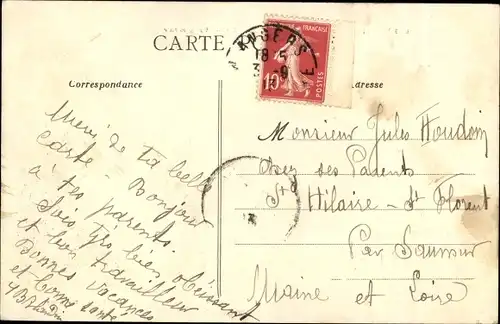 CARTE
Correspondance
ANGERS
18 5
10
POSTES
Merci de ta belle
Carte - Bonjour
à tes parents.
Sois très bien obéissant
et bon travailleur
Bonnes vacances
et bonne santé
Monsieur Jules Houdoin
chez ses Parents
St Hilaire - St Florent
Par Saumur
Maine et Loire